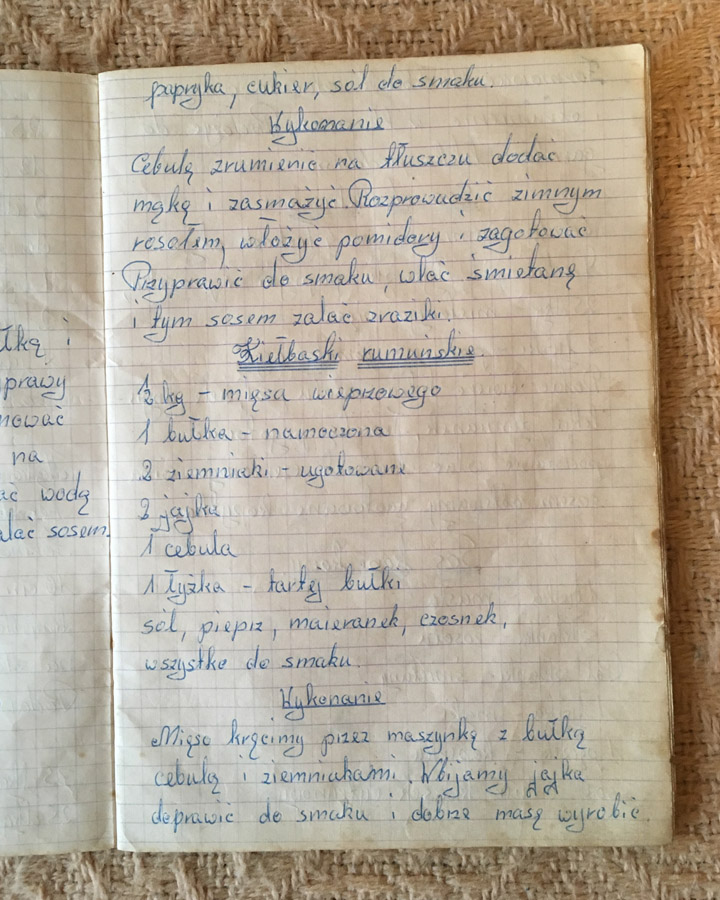 łką i
prawy
nować
na
ać wodą
alać sosem.
papryka, cukier, sól do smaku.
Wykonanie
Cebulę zrumienić na tłuszczu dodać
mąkę i zasmażyć. Rozprowadzić zimnym
rosołem, włożyć pomidory i zagotować
Przyprawić do smaku, wlać śmietanę
i tym sosem zalać zraziki.
Kiełbaski rumuńskie.
1/2 kg - mięsa wieprzowego
1 bułka - namoczona
2 ziemniaki - ugotowane
2 jajka
1 cebula
1 łyżka - tartej bułki
sól, pieprz, maieranek, czosnek,
wszystko do smaku.
Wykonanie
Mięso kręcimy przez maszynkę z bułką
cebulą i ziemniakami. Wbijamy jajka
doprawić do smaku i dobrze masę wyrobić.